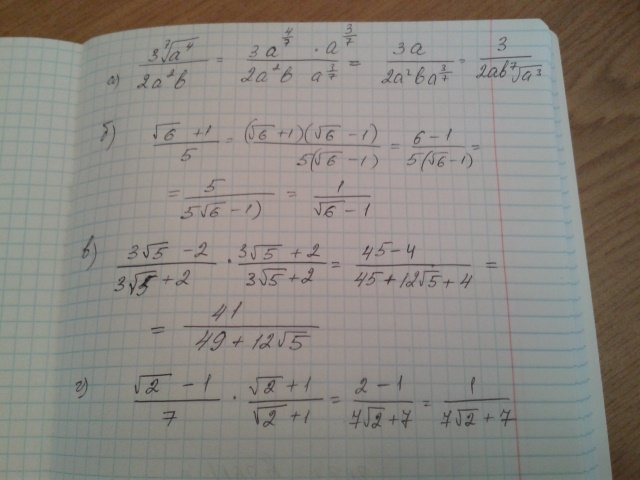 а) 3⁷√a⁴ / 2a²b = 3a^(4/7) · a^(3/7) / 2a²b a^(3/7) = 3a / 2a²ba^(3/7) = 3 / 2ab⁷√a³
б) √6 +1 / 5 = (√6 +1)(√6 -1) / 5(√6 -1) = 6-1 / 5(√6-1) =
= 5 / 5√6 -1) = 1 / √6 -1
в) 3√5 -2 / 3√5 +2 · 3√5 +2 / 3√5 +2 = 45-4 / 45+12√5+4 =
= 41 / 49+12√5
г) √2 -1 / 7 · √2 +1 / √2 +1 = 2-1 / 7√2+7 = 1 / 7√2+7